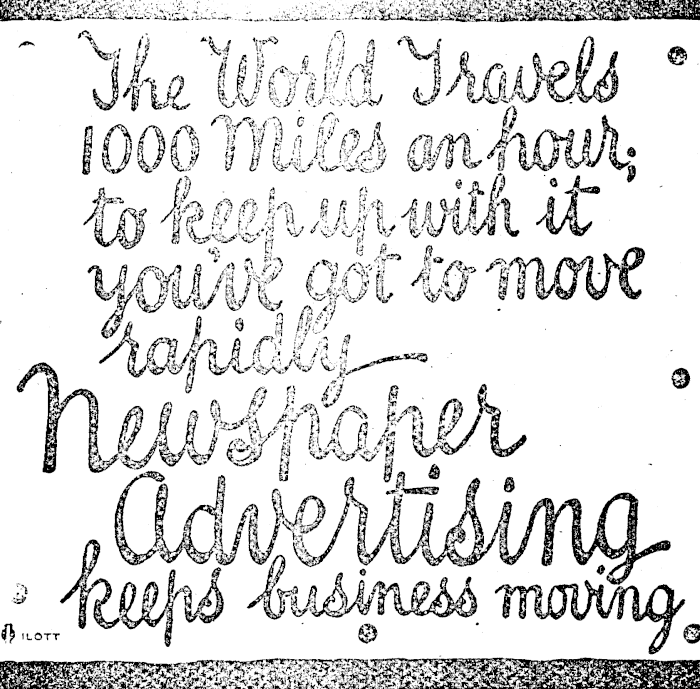 The World Travels
1000 Miles an hour;
to keep up with it
you've got to move
rapidly—
Newspaper
Advertising
keeps business moving
ILOTT